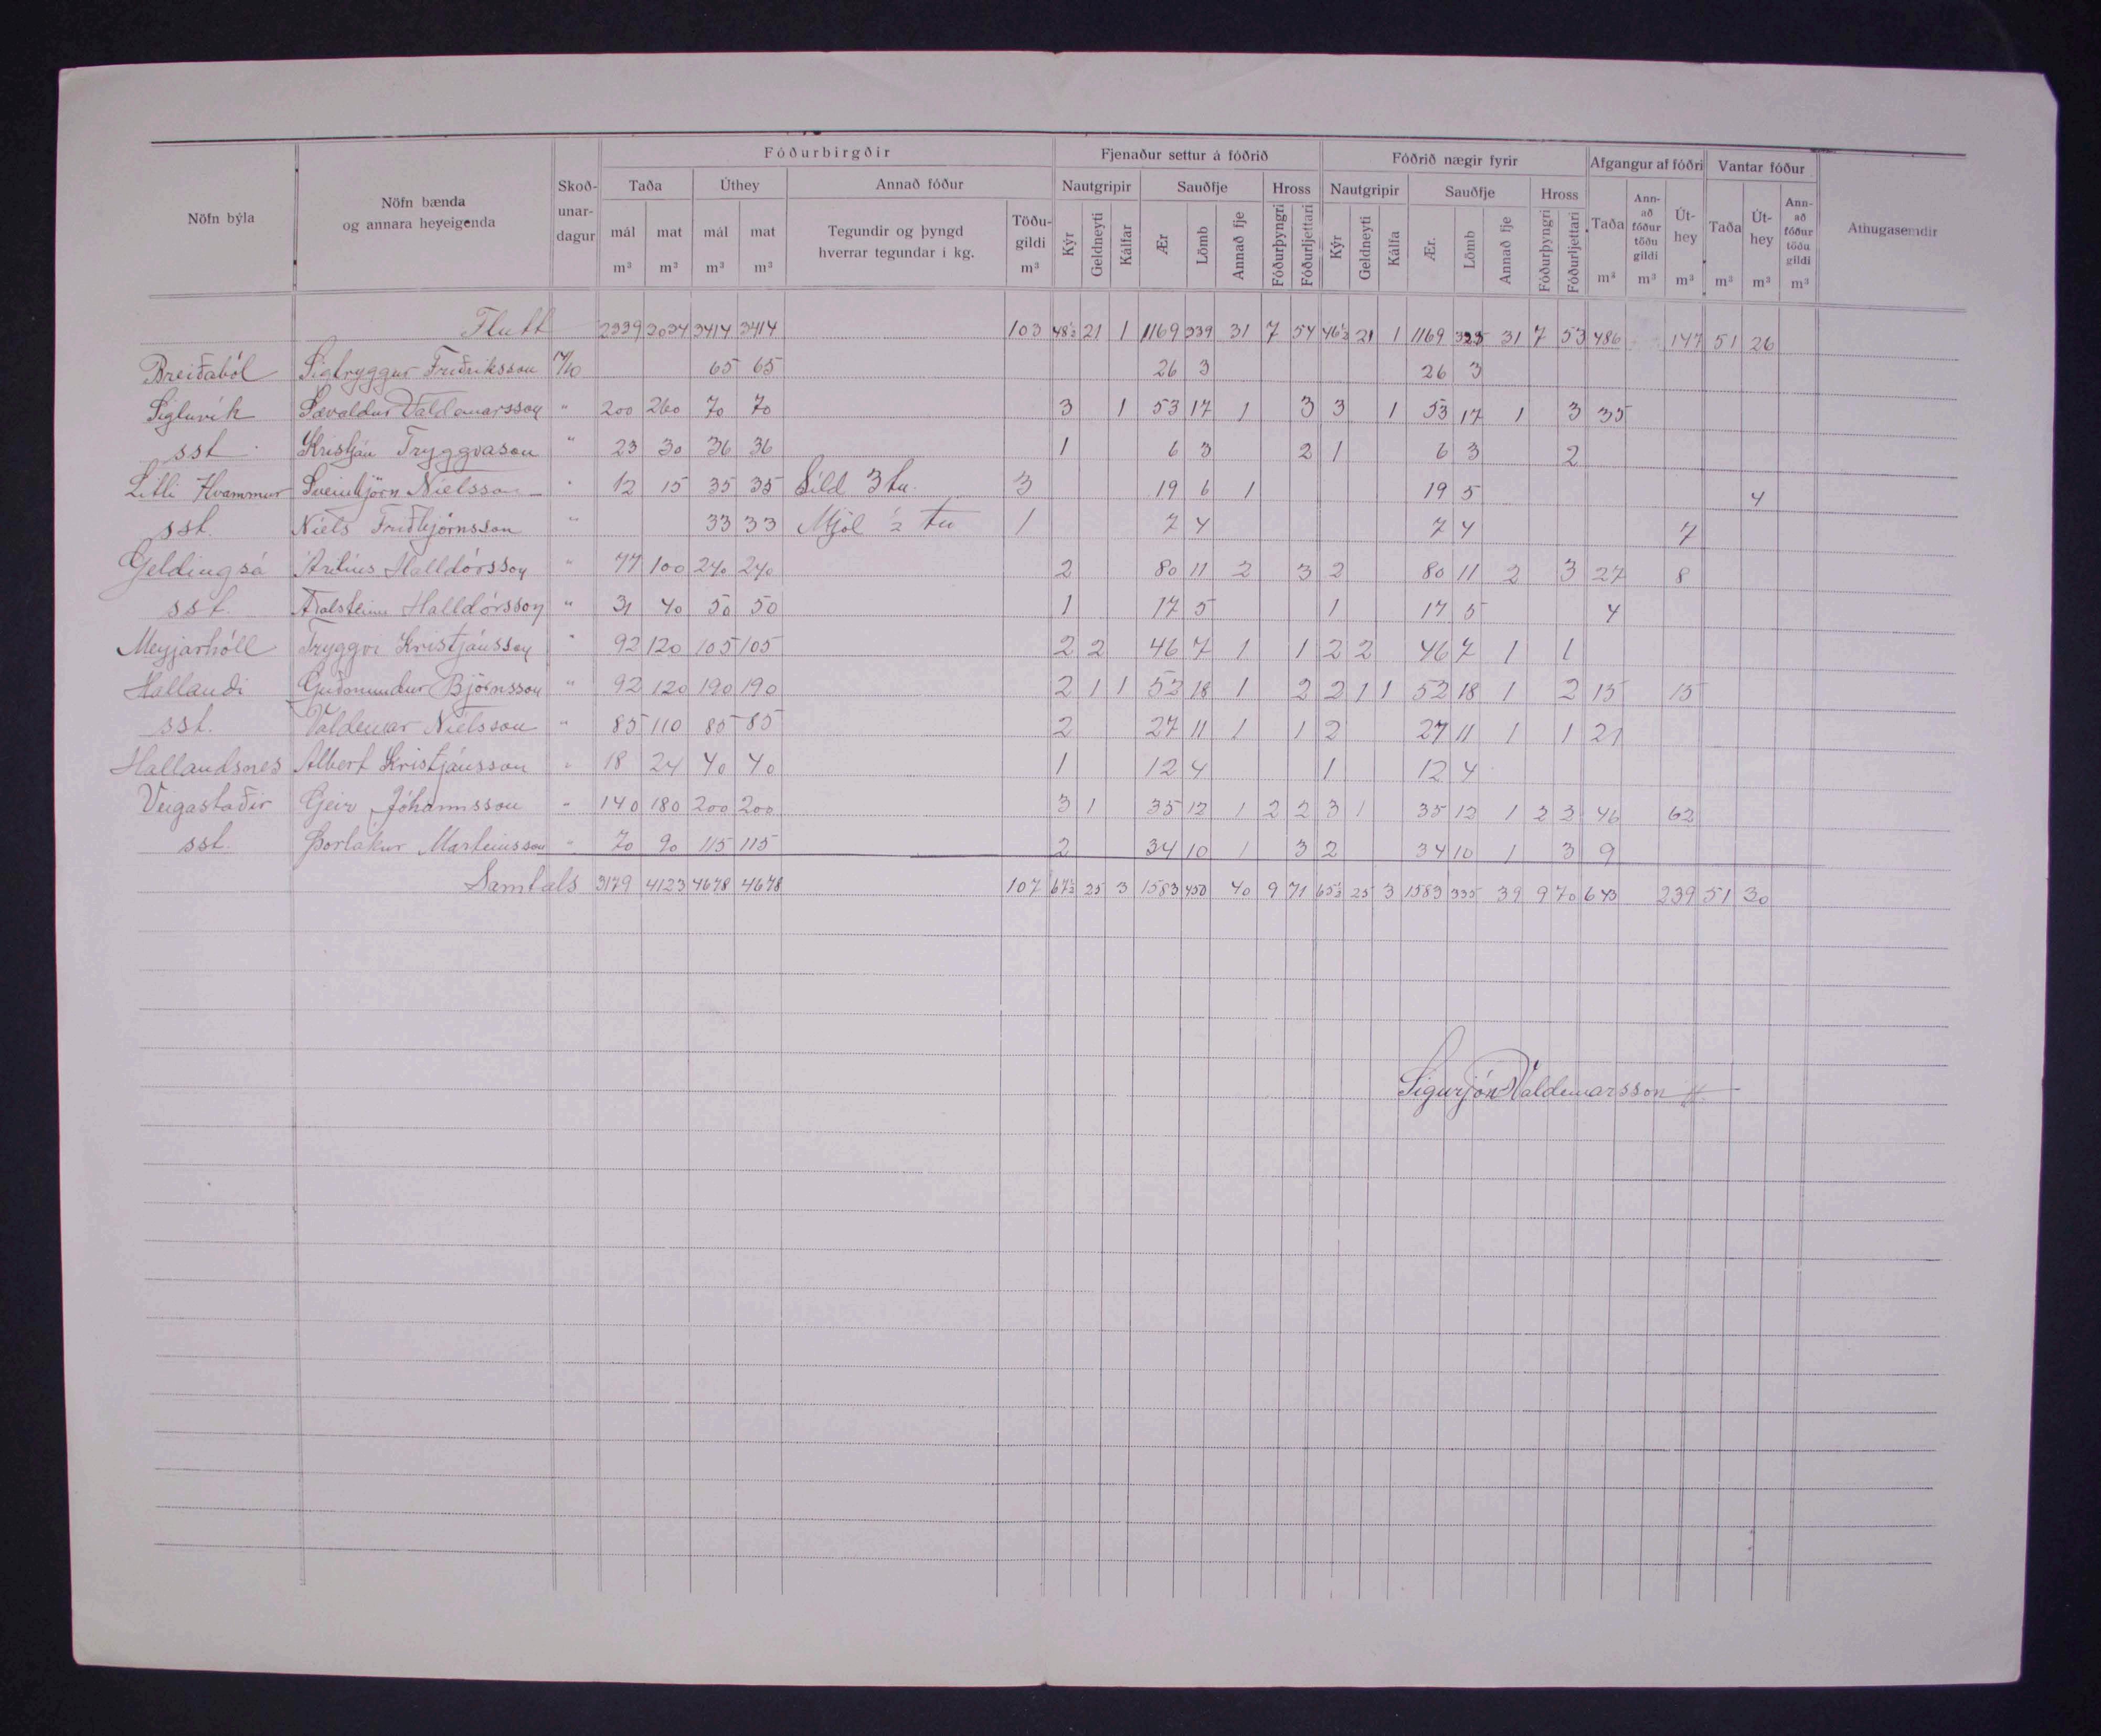 Fóðurbirgðir Fjenaður settur á fóðrið Fóðrið nægir fyrir Afgangur af fóðri Vantar fóður
Nöfn býla Nöfn bænda og annara heyeigenda Skoð-unar-dagur Taða Úthey Annað fóður Nautgripir Sauðfje Hross Nautgripir Sauðfje Hross Athugasemdir
mál m³ mat m³ mál m³ mat m³ Tegundir og þyngd hverrar tegundar í kg. Töðu-gildi m³ Kýr Geldneyti Kálfar Ær Lömb Annað fje Fóðurþyngri Fóðurljettari Kýr Geldneyti Kálfa Ær. Lömb Annað fje Fóðurþyngri Fóðurljettari Taða m³ Ann-að fóður töðu gildi m³ Út-hey m³ Taða m³ Út-hey m³ Ann-að fóður töðu gildi m³
Flutt 2339 3034 3414 3414 103 48½ 21 1 1169 339 31 7 54 46½ 21 1 1169 325 31 7 53 486 147 51 26
Breiðaból Sigtryggur Friðriksson 65 65 26 3 26 3
Sigluvík Sævaldur Valdemarsson " 200 260 70 70 3 1 53 17 1 3 3 1 53 17 1 3 35
sst. Kristján Tryggvason " 23 30 36 36 1 6 3 2 1 6 3 2
Litli Hvammur Sveinbjörn Níelsson " 12 15 35 35 Síld 3 tu. 3 19 6 1 19 5 4
sst. Níels Friðbjörnsson " 33 33 Mjöl ½ tu 1 7 4 7 4 7
Geldingsá Halldórsson " 77 100 240 240 2 80 11 2 3 2 80 11 2 3 27 8
sst. Aðalsteinn Halldórsson " 31 40 50 50 1 17 5 1 17 5 4
Meyjarhóll Tryggvi Kristjánsson " 92 120 105 105 2 2 46 7 1 1 2 2 46 7 1 1
Hallandi Guðmundur Björnsson " 92 120 190 190 2 1 1 52 18 1 2 2 1 1 52 18 1 2 15 15
sst. Valdemar Níelsson " 85 110 85 85 2 27 11 1 1 2 27 11 1 1 21
Hallandsnes Albert Kristjánsson " 18 24 40 40 1 12 4 1 12 4
Veigastaðir Geir Jóhannsson " 140 180 200 200 3 1 35 12 1 2 2 3 1 35 12 1 2 2 46 62
sst. Þorlákur Marteinsson " 70 90 115 115 2 34 10 1 3 2 34 10 1 3 9
Samtals 3179 4123 4678 4678 107 67½ 25 3 1583 450 40 9 71 65½ 25 3 1583 335 39 9 70 643 239 51 30
Sigurjón Valdemarsson